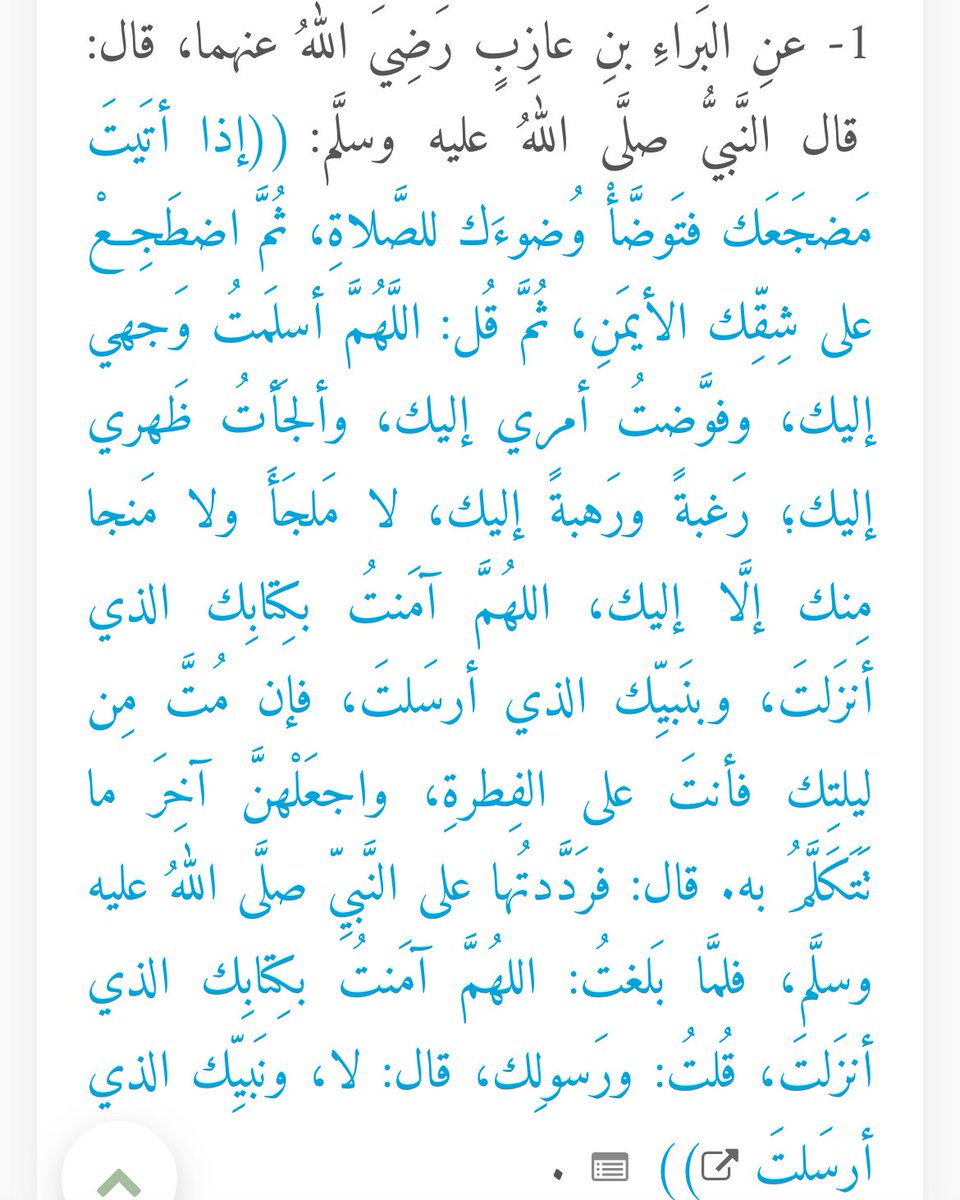 1- عنِ البَراءِ بنِ عازِبٍ رَضِيَ اللهُ عنهما، قال:
قال النَّبيُّ صلَّى اللهُ عليه وسلَّم: ((إذا أتَيتَ
مَضجَعَك فتَوضَّأْ وُضوءَك للصَّلاةِ، ثُمَّ اضطَجِـعْ
على شِقِّك الأيمَنِ، ثُمَّ قُل: اللَّهُمَّ أسلَمتُ وَجهي
إليك، وفوَّضتُ أمري إليك، وألجَأتُ ظَهري
إليك؛ رَغبةً ورَهبةً إليك، لا مَلجَأَ ولا مَنجا
مِنك إلَّا إليك، اللهُمَّ آمَنتُ بكِتابِك الذي
أنزَلتَ، وبنَبيِّك الذي أرسَلتَ، فإن مُتَّ مِن
ليلتِك فأنتَ على الفِطرةِ، واجعَلْهنَّ آخِرَ ما
تَتَكَلَّمُ به. قال: فرَدَّدتُها على النَّبيِّ صلَّى اللهُ عليه
وسلَّم، فلمَّا بَلَغتُ: اللهُمَّ آمَنتُ بكِتابِك الذي
أنزَلتَ، قُلتُ: ورَسولِك، قال: لا، ونَبيِّك الذي
أرسَلتَ)) .